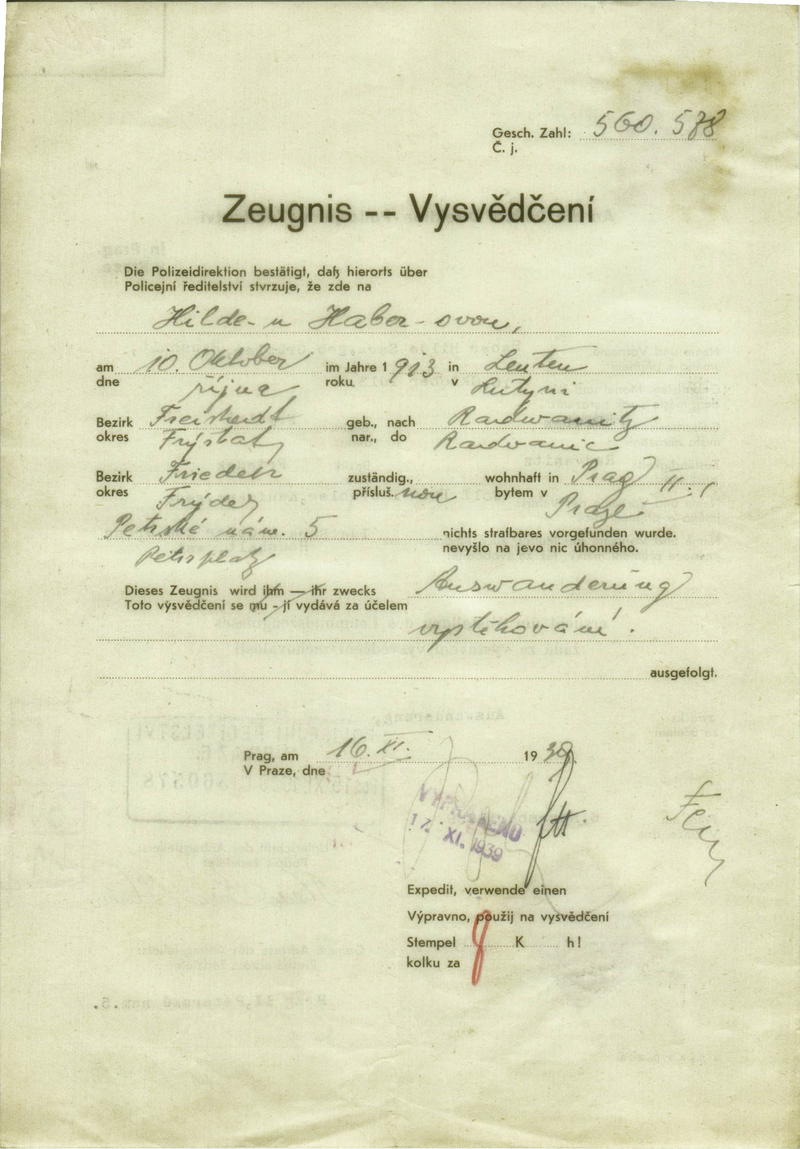 Gesch. Zahl: 560.578
Č. j.
Zeugnis -- Vysvědčení
Die Polizeidirektion bestätigt, daß hierorts über
Policejní ředitelství stvrzuje, že zde na
Hilde-u Haber-ovou,
am 10. Oktober im Jahre 1913 in Leuten
dne října roku v Lutyni
Bezirk Freistadt geb., nach Radwanitz
okres Fryštat nar., do Radvanic
Bezirk Friedek zuständig., wohnhaft in Prag II.,
okres Frýdek přísluš.nou bytem v Praze
Petrské nám. 5 nichts strafbares vorgefunden wurde.
Petrsplatz nevyšlo na jevo nic úhonného.
Dieses Zeugnis wird ihm — ihr zwecks Auswanderung
Toto výsvědčení se mu - jí vydává za účelem
vystěhování.
ausgefolgt.
Prag, am 16. XI. 1939.
V Praze, dne
VYPRAVENO
17. XI. 1939
Expedit, verwende einen
Výpravno, použij na vysvědčení
Stempel 8 K h!
kolku za